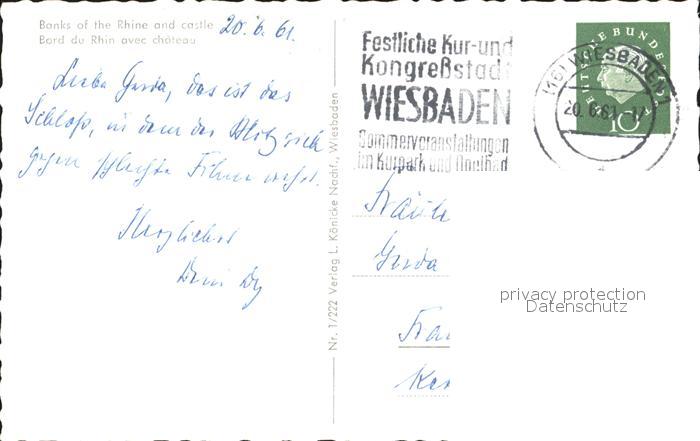 Banks of the Rhine and castle
Bord du Rhin avec château
20.6.61.
Liebe Gerda, das ist das
Schloß, in dem der
gegen schlechte Filme wehrt.
Herzlichst
Dein
Nr. 1/222 Verlag L. Könicke Nachf., Wiesbaden
Festliche Kur-und
Kongreßstadt
WIESBADEN
Sommerveranstaltungen
im Kurpark und Opelbad
(16) WIESBADEN 1
20. 6.61.-17
DEUTSCHE BUNDES
10
Fräule
Gerda
Fra
Kar
privacy protection
Datenschutz